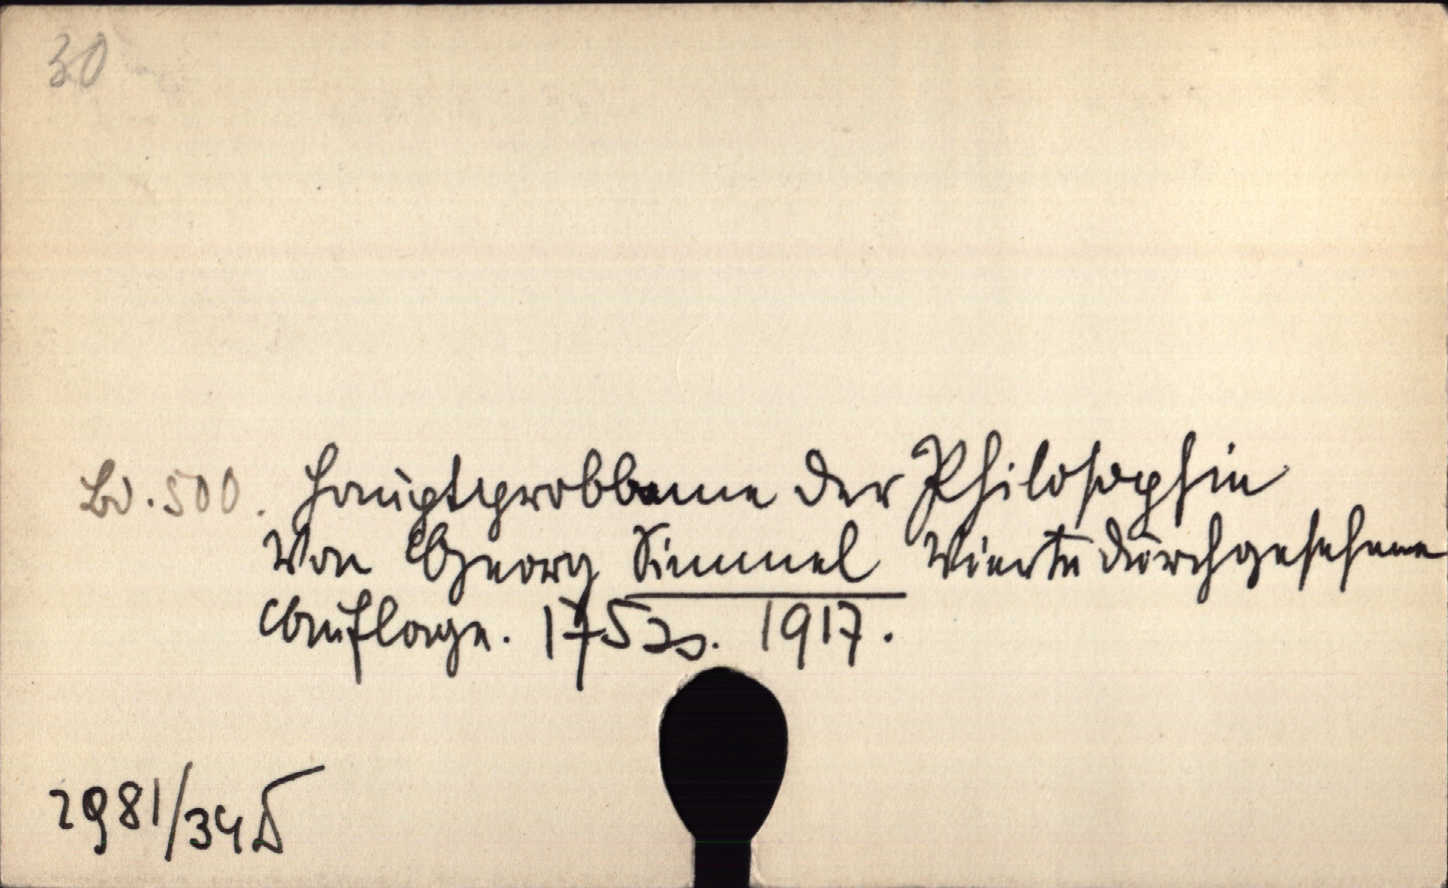 30
Bd. 500. Hauptprobleme der Philosophie
Von Georg Simmel Vierte durchgesehene
Auflage. 175 S. 1917.
2981/34